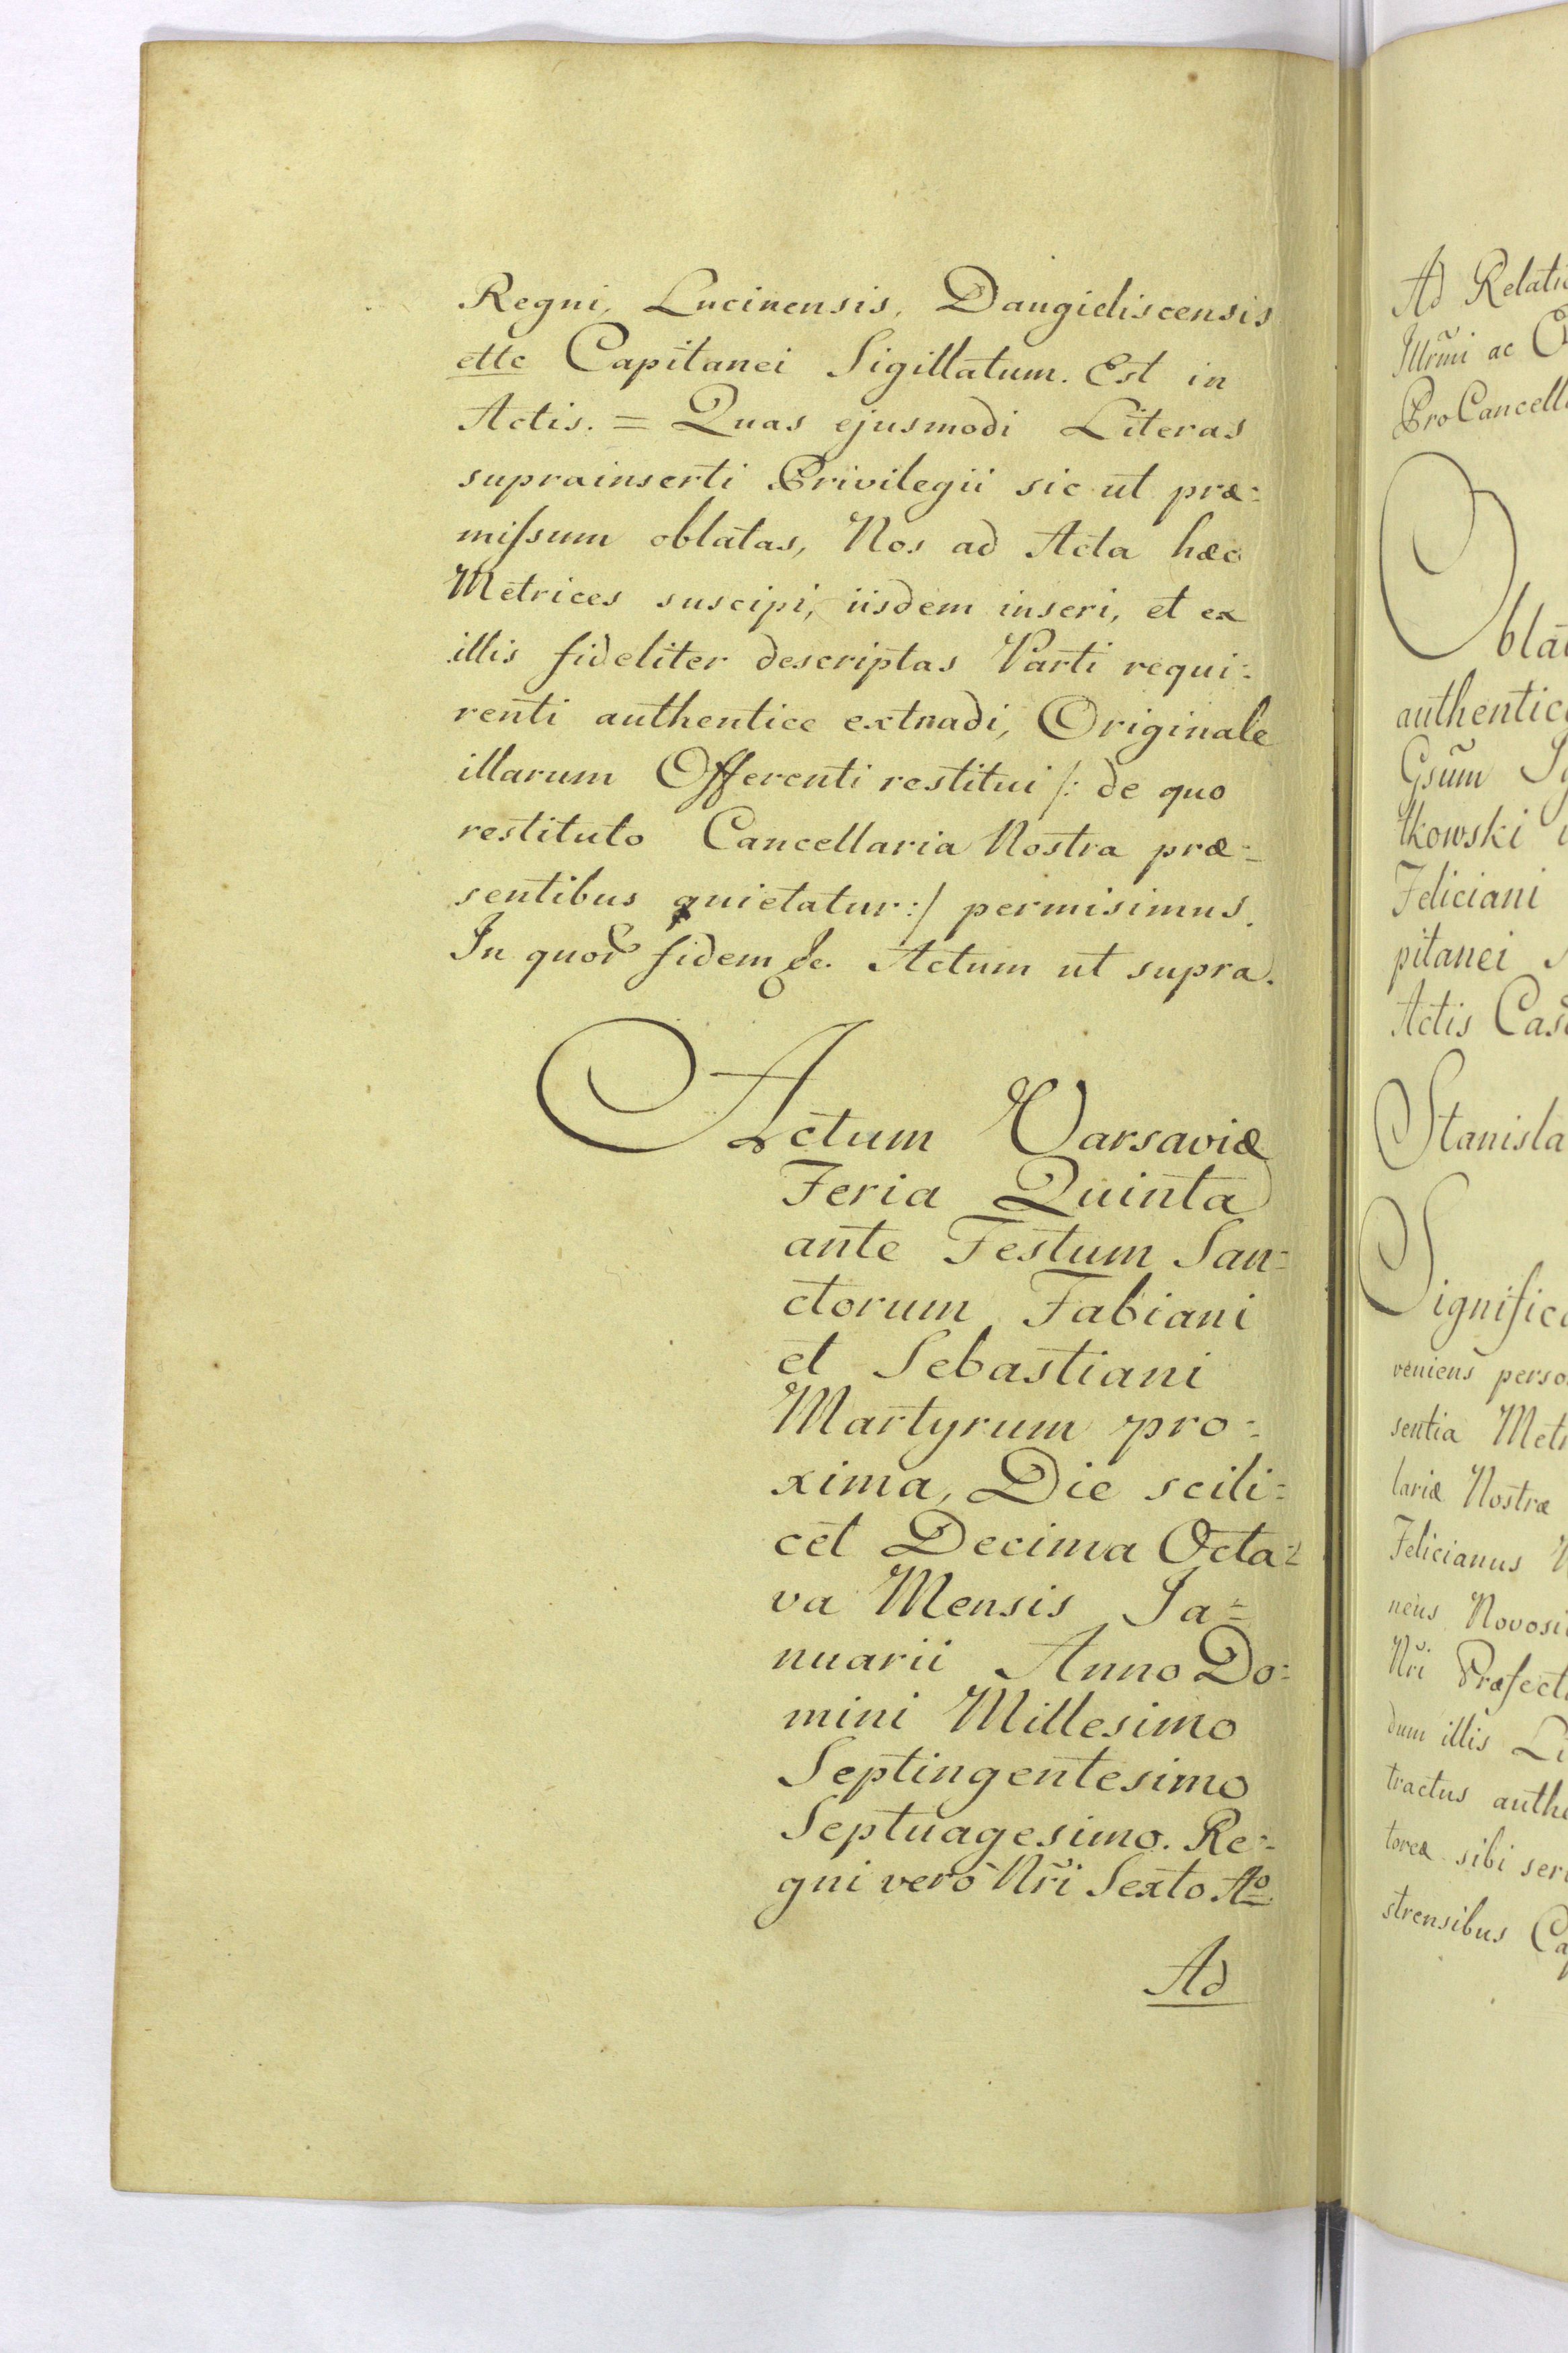 Regni, Lucinensis, Daugieliscensis
ettc Capitanei Sigillatum. Est in
Actis. = Quas ejusmodi Literas
suprainserti Privilegii sic ut præ=
mißsum oblatas, Nos ad Acta hæc
Metrices suscipi, iisdem inseri, et ex
illis fideliter descriptas Parti requi=
renti authentice extradi, Originale
illarum Offerenti restitui /: de quo
restituto Cancellaria Nostra præ=
sentibus quietatur :/ permisimus.
In quor fidem &c. Actum ut supra.
Actum Varsaviæ
Feria Quinta
ante Festum San=
ctorum Fabiani
et Sebastiani
Martyrum pro=
xima, Die scili=
cet Decima Octa=
va Mensis Ja=
nuarii Anno Do=
mini Millesimo
Septingentesimo
Septuagesimo. Re=
gni vero Nri Sexto Ao
Ad
Ad Relatio
Illrmi ac
ProCancell
Obla
authentic
Gsum
tkowski
Feliciani
pitanei
Actis Cas
Stanisla
Significa
veniens perso
sentia Met
lariæ Nostræ
Felicianus
neus Novosi
Nri Præfect
dum illis Li
tractus auth
toreæ sibi ser
strensibus Ca